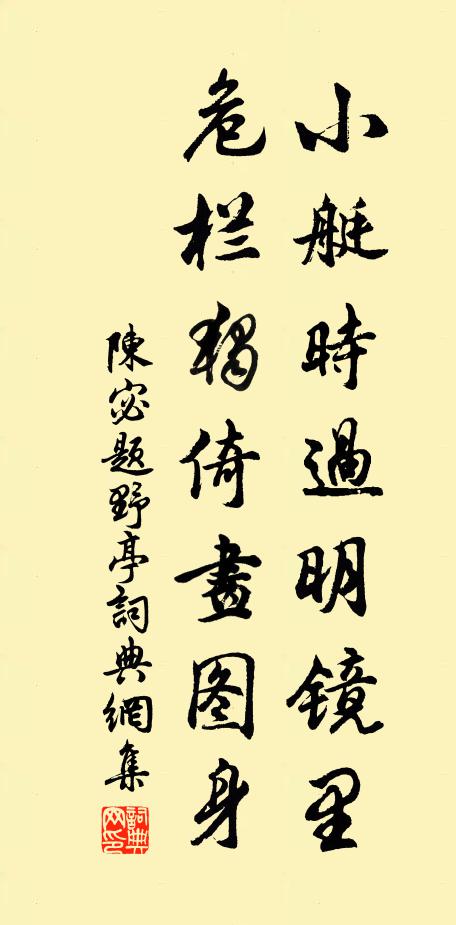 小艇時過明镜里
危栏獨倚畫图身
陳宓題野亭詞典網集
詞典网印